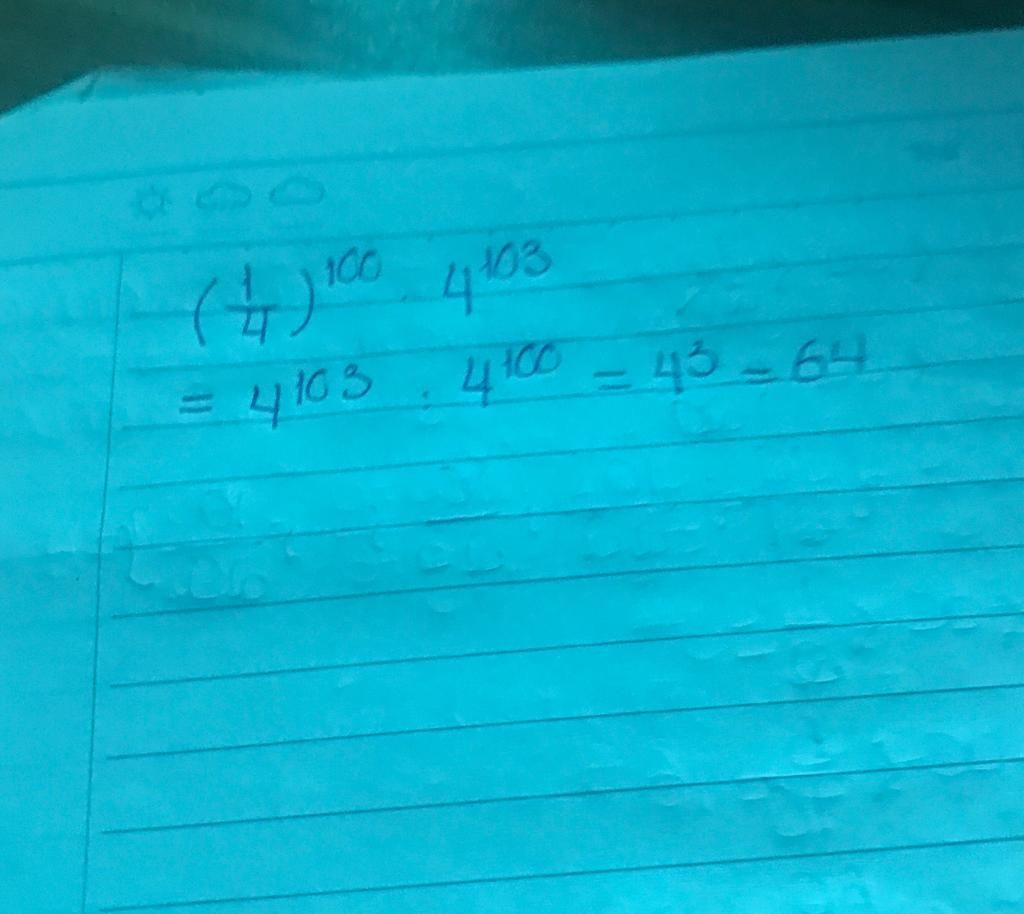 (1/4)^100 . 4^103
= 4^103 : 4^100 = 4^3 = 64